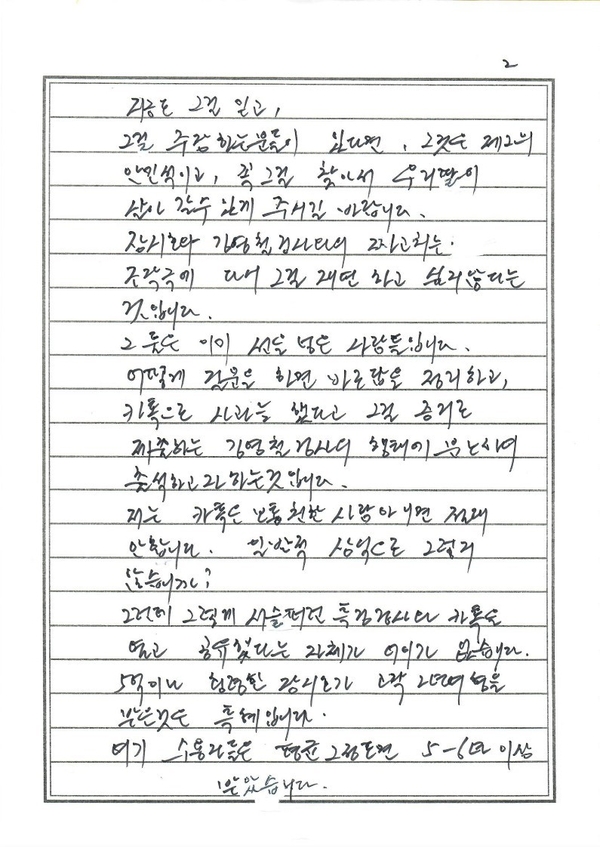 2
지금도 그걸 믿고,
그걸 주장하는분들이 있다면, 그것은 제2의
안민석이고, 꼭 그걸 찾아서 우리딸이
살아 갈수 있게 주시길 바랍니다.
장시호와 김영철검사와의
조각극에 다시 그걸 재연 하고 싶지않다는
것입니다.
그 들은 이미 선을 넘은 사람들입니다.
어떻게 질문을 하면 바로답을 정리하고,
카톡으로 사과를 했다고 그걸 증거로
김영철검사의 행태에 분노하여
출석하고라 하는것입니다.
저는 카톡은 보통친한 사람아니면 절대
안합니다. 일반적 상식으로 그렇지
않습니까?
그런데 그렇게 서슬퍼런 특검검사와 카톡을
열고 공유했다는 자체가 어이가 없습니다.
5억이나 횡령한 장시호가 고작 2년여형을
받은것은 특혜입니다.
여기 수용자들은 평균 그정도면 5-6년 이상
받았습니다.